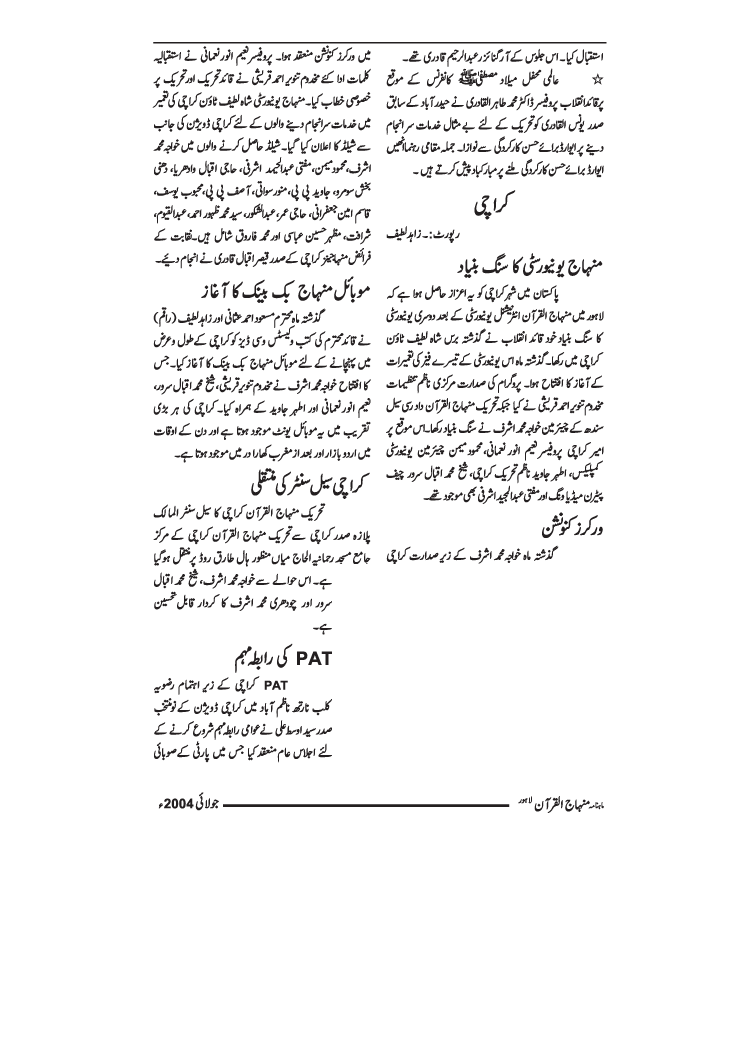 استقبال کیا۔ اس جلوس کے آرگنائزر عبدالرحیم قادری تھے۔
☆ عالمی محفل میلاد مصطفیٰ ﷺ کانفرنس کے موقع
پر قائد انقلاب پروفیسر ڈاکٹر محمد طاہر القادری نے حیدر آباد کے سابق
صدر یونس القادری کو تحریک کے لئے بے مثال خدمات سر انجام
دینے پر ایوارڈ برائے حسن کارکردگی سے نوازا۔ جملہ مقامی رہنما انھیں
ایوارڈ برائے حسن کارکردگی ملنے پر مبارکباد پیش کرتے ہیں۔
کراچی
رپورٹ:۔ زاہد لطیف
منہاج یونیورسٹی کا سنگ بنیاد
پاکستان میں شہر کراچی کو یہ اعزاز حاصل ہوا ہے کہ
لاہور میں منہاج القرآن انٹرنیشنل یونیورسٹی کے بعد دوسری یونیورسٹی
کا سنگ بنیاد خود قائد انقلاب نے گذشتہ برس شاہ لطیف ٹاؤن
کراچی میں رکھا۔ گذشتہ ماہ اس یونیورسٹی کے تیسرے فیز کی تعمیرات
کے آغاز کا افتتاح ہوا۔ پروگرام کی صدارت مرکزی ناظم تنظیمات
مخدوم تنویر احمد قریشی نے کیا جبکہ تحریک منہاج القرآن دادرسی سیل
سندھ کے چیئرمین خواجہ محمد اشرف نے سنگ بنیاد رکھا۔ اس موقع پر
امیر کراچی پروفیسر نعیم انور نعمانی، محمود میمن چیئرمین یونیورسٹی
کمپلیکس، اطہر جاوید ناظم تحریک کراچی، شیخ محمد اقبال سرور چیف
پیٹرن میڈیا ونگ اور مفتی عبدالمجید اشرفی بھی موجود تھے۔
ورکرز کنونشن
گذشتہ ماہ خواجہ محمد اشرف کے زیر صدارت کراچی
میں ورکرز کنونشن منعقد ہوا۔ پروفیسر نعیم انور نعمانی نے استقبالیہ
کلمات ادا کئے مخدوم تنویر احمد قریشی نے قائد تحریک اور تحریک پر
خصوصی خطاب کیا۔ منہاج یونیورسٹی شاہ لطیف ٹاؤن کراچی کی تعمیر
میں خدمات سرانجام دینے والوں کے لئے کراچی ڈویژن کی جانب
سے شیلڈ کا اعلان کیا گیا۔ شیلڈ حاصل کرنے والوں میں خواجہ محمد
اشرف، محمود میمن، مفتی عبدالحمید اشرفی، حاجی اقبال وادھریا، دھنی
بخش سومرو، جاوید پی پی، منور سواتی، آصف پی پی، محبوب یوسف،
قاسم امین جعفرانی، حاجی عمر، عبدالشکور، سید محمد ظہور احمد، عبدالقیوم،
شرافت، مظہر حسین عباسی اور محمد فاروق شامل ہیں۔ نقابت کے
فرائض منہاجینز کراچی کے صدر قیصر اقبال قادری نے انجام دیئے۔
موبائل منہاج بک بینک کا آغاز
گذشتہ ماہ محترم مسعود احمد عثمانی اور زاہد لطیف (راقم)
نے قائد محترم کی کتب و کیسٹس وسی ڈیز کو کراچی کے طول و عرض
میں پہنچانے کے لئے موبائل منہاج بک بینک کا آغاز کیا۔ جس
کا افتتاح خواجہ محمد اشرف نے مخدوم تنویر قریشی، شیخ محمد اقبال سرور،
نعیم انور نعمانی اور اطہر جاوید کے ہمراہ کیا۔ کراچی کی ہر بڑی
تقریب میں یہ موبائل یونٹ موجود ہوتا ہے اور دن کے اوقات
میں اردو بازار اور بعد از مغرب کھارادر میں موجود ہوتا ہے۔
کراچی سیل سنٹر کی منتقلی
تحریک منہاج القرآن کراچی کا سیل سنٹر المالک
پلازہ صدر کراچی سے تحریک منہاج القرآن کراچی کے مرکز
جامع مسجد رحمانیہ الحاج میاں منظور ہال طارق روڈ پر منتقل ہو گیا
ہے۔ اس حوالے سے خواجہ محمد اشرف، شیخ محمد اقبال
سرور اور چودھری محمد اشرف کا کردار قابل تحسین
ہے۔
PAT کی رابطہ مہم
PAT کراچی کے زیر اہتمام رضویہ
کلب نارتھ ناظم آباد میں کراچی ڈویژن کے نومنتخب
صدر سید اوسط علی نے عوامی رابطہ مہم شروع کرنے کے
لئے اجلاس عام منعقد کیا جس میں پارٹی کے صوبائی
ماہنامہ منہاج القرآن لاہور
جولائی 2004ء